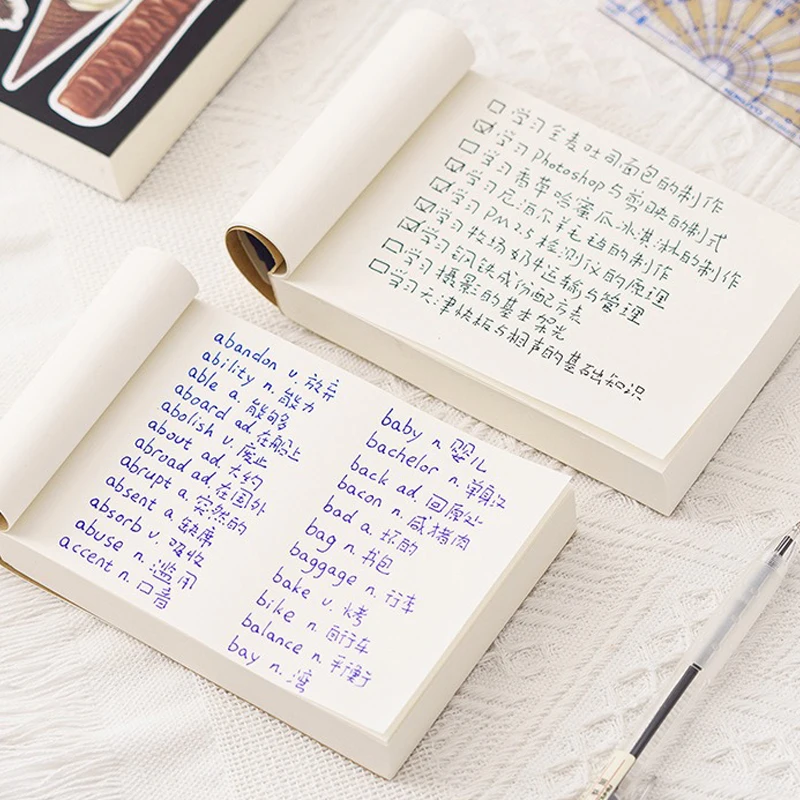 学习全麦吐司面包的制作
学习Photoshop与剪映的制式
学习香草哈蜜瓜冰淇淋的制作
学习尼泊尔羊毛毡的制作
学习PM2.5检测仪的原理
学习牧场奶牛运输与管理
学习钢铁成份配方表
学习摄影的基本架光
学习天津快板与相声的基础知识
abandon v. 放弃
ability n. 能力
able a. 能够多
aboard ad. 在船上
abolish v. 废止
about ad. 大约
abroad ad. 在国外
abrupt a. 突然的
absent a. 缺席
absorb v. 吸收
abuse n. 滥用
accent n. 口音
baby n. 婴儿
bachelor n. 单身汉
back ad. 回原处
bacon n. 咸猪肉
bad a. 坏的
bag n. 书包
baggage n. 行车
bake v. 烤
bike n. 自行车
balance n. 平衡
bay n. 湾